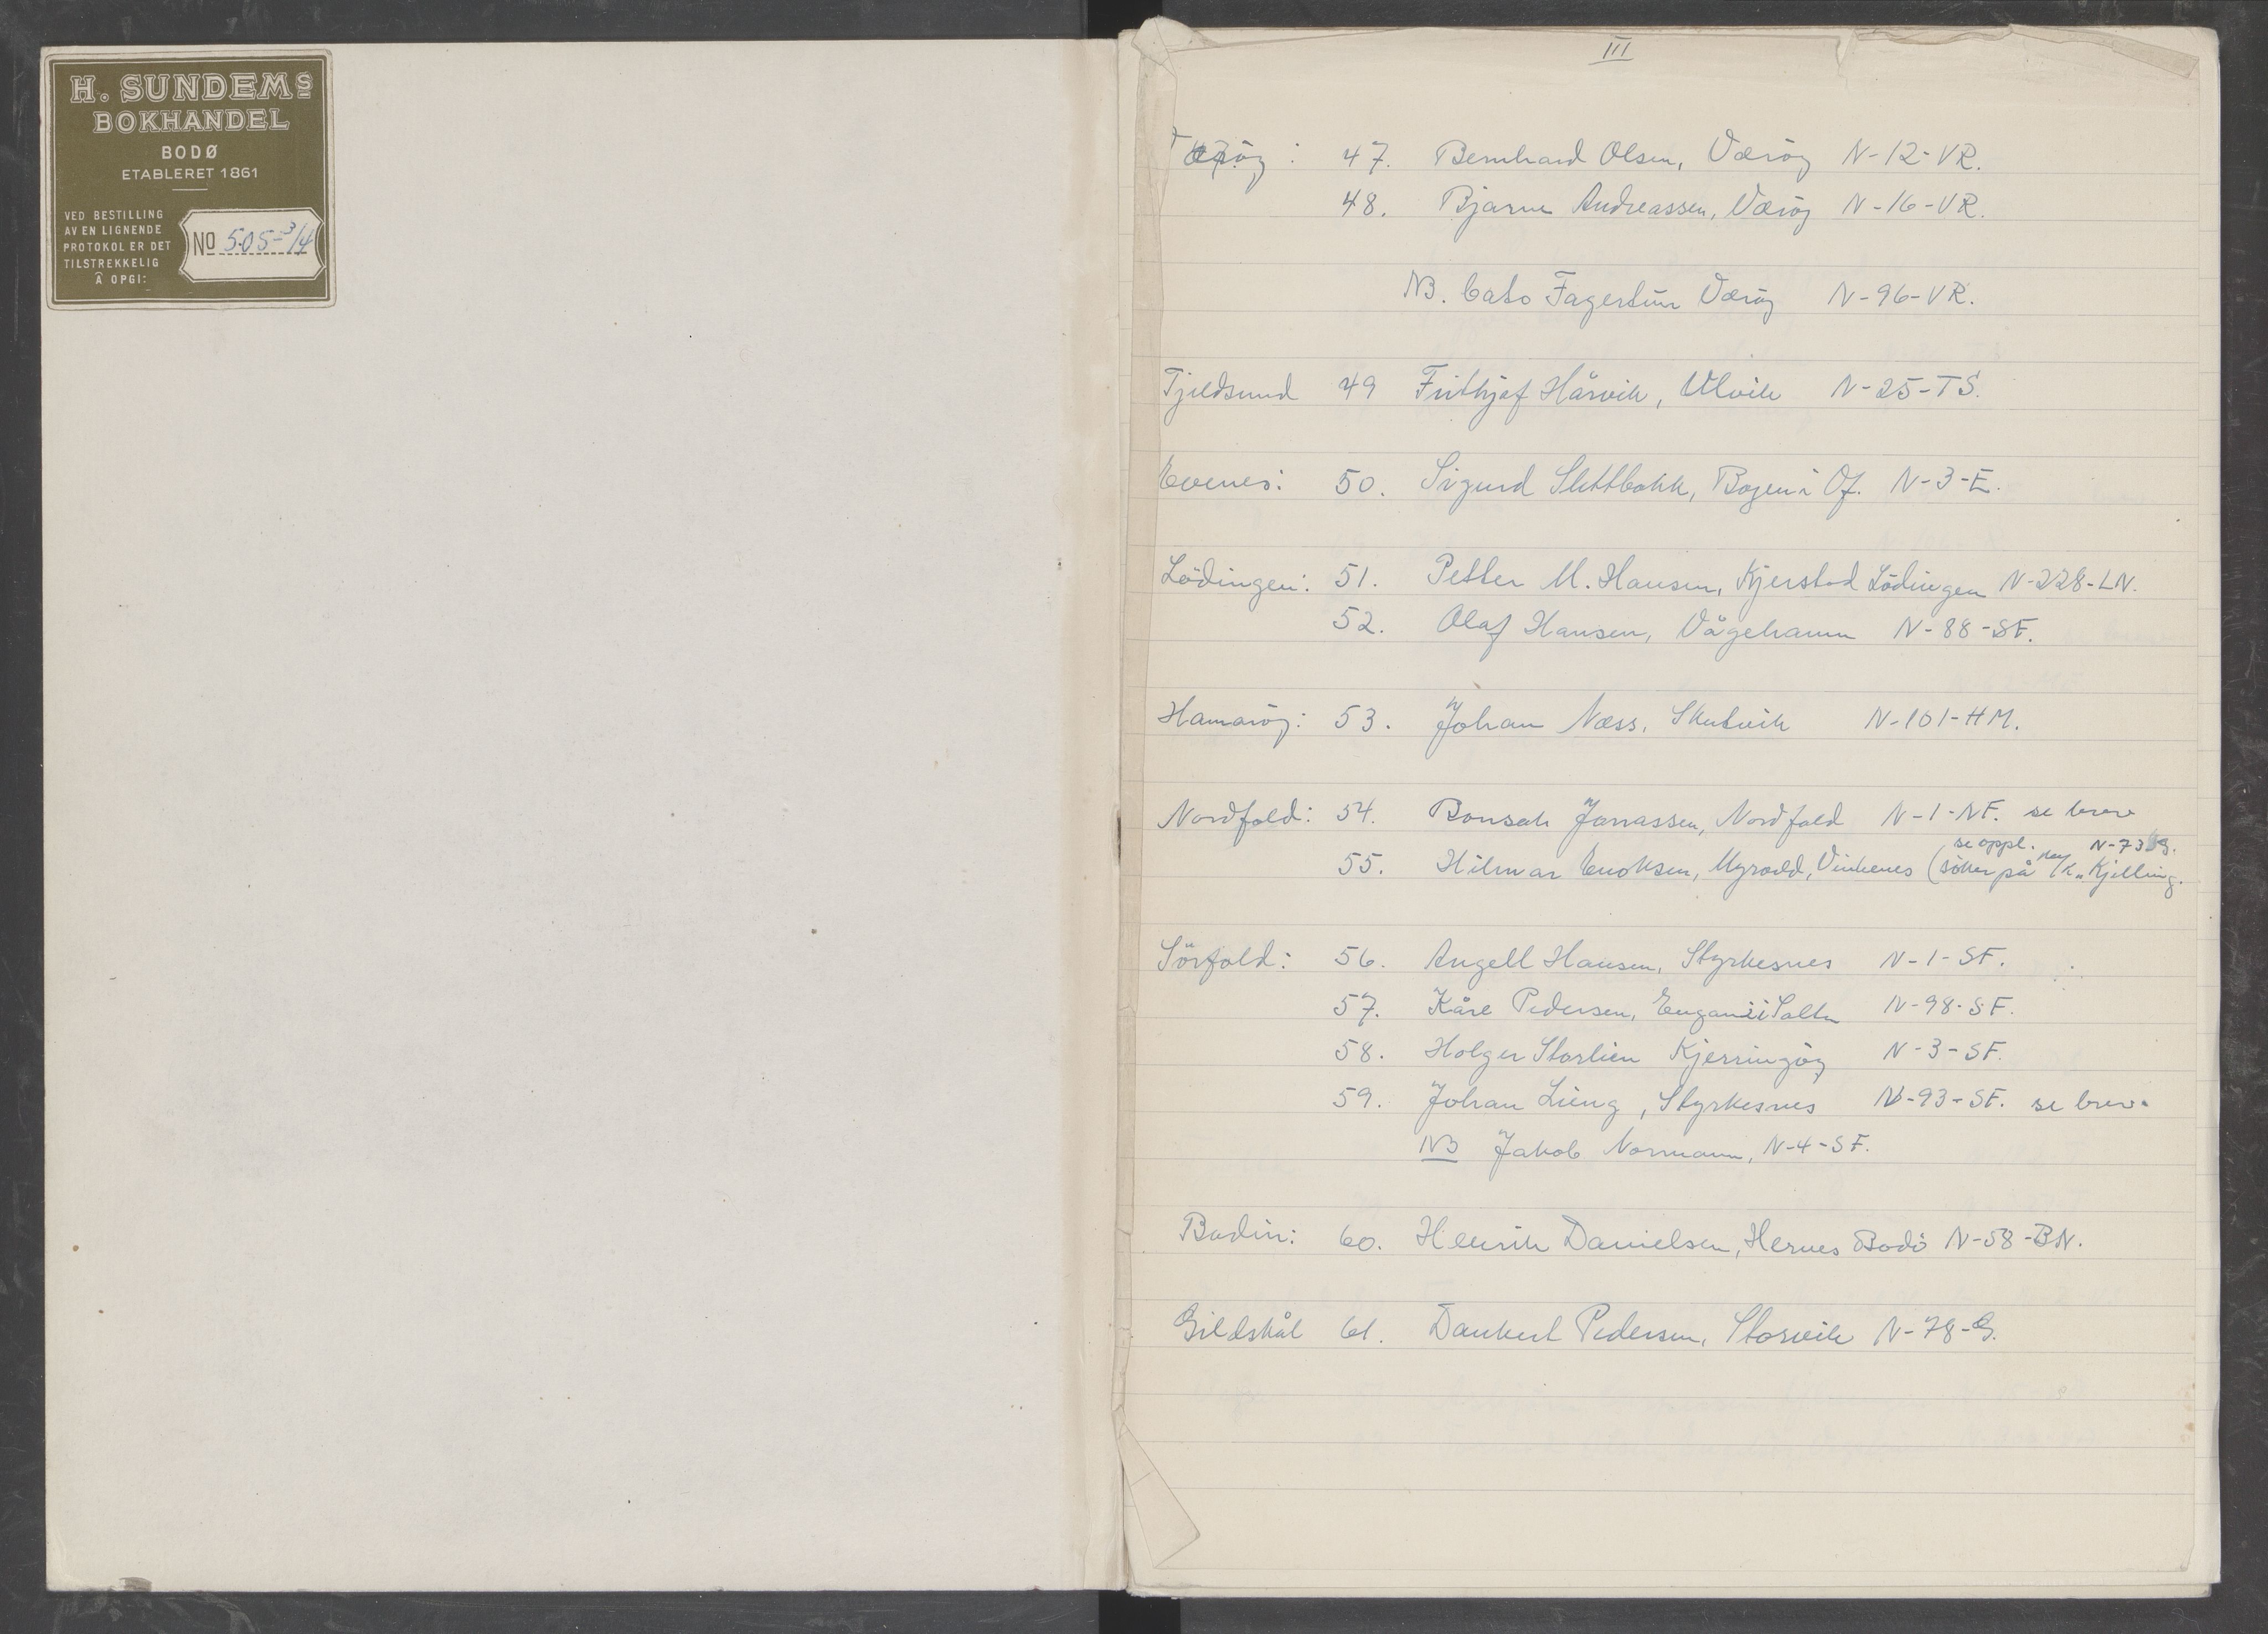 H. SUNDEMS
BOKHANDEL
BODØ
ETABLERET 1861
VED BESTILLING
AV EN LIGNENDE
PROTOKOL ER DET
TILSTREKKELIG
Å OPGI:
No 505-3/4
III
47. Bernhard Olsen, Væröy N-12-VR.
48. Bjarne Andreassen, Væröy N-16-VR.
NB. Cato Fagertun Væröy N-96-VR.
Tjeldsund 49 Frithjof Hårvik, Ulvik N-25-TS.
Evenes: 50. Sigurd Slettbakk, Bogen i Of. N-3-E.
Lödingen: 51. Petter M. Hansen, Kjerstad Lödingen N-228-LN.
52. Olaf Hansen, Vågehamn N-88-SF.
Hamaröy: 53. Johan Næss, Skutvik N-101-HM.
Nordfold: 54. Bonsak Jonassen, Nordfold N-1-NF. se brev
se oppl. N-73
55. Hilmar Enoksen, Myrvold, Vinkenes (söker på M/K „Kjelling.
Sörfold: 56. Angell Hansen, Styrkesnes N-1-SF.
57. Kåre Pedersen, Engan i Salten N-98-SF.
58. Holger Storlien Kjerringöy N-3-SF.
59. Johan Lieng, Styrkesnes N-93-SF. se brev.
NB Jakob Normann, N-4-SF.
Bodin: 60. Henrik Danielsen, Hernes Bodö N-58-BN.
Gildskål 61. Dankert Pedersen, Storvik N-78-G.